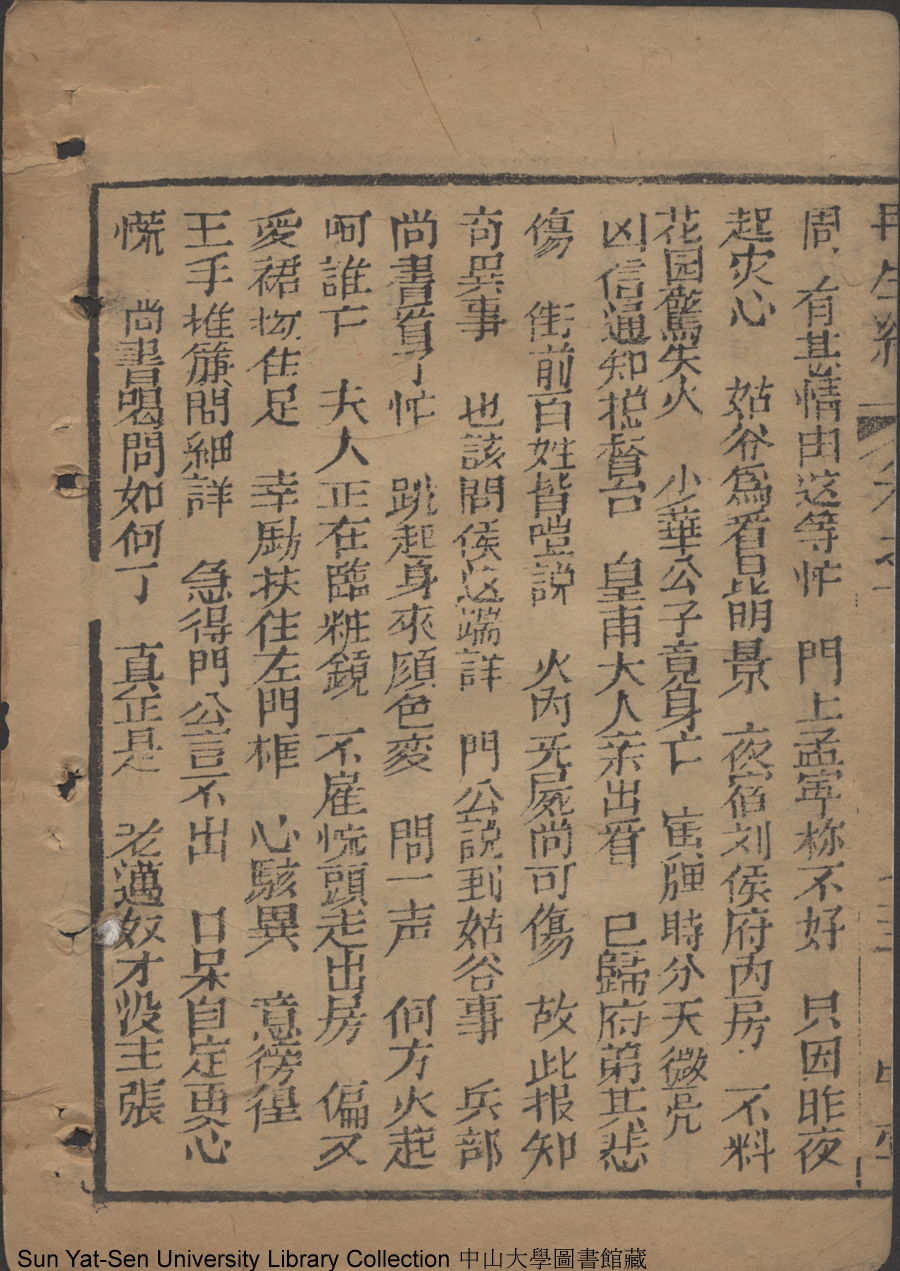 再生緣
周 有甚情由这等忙 門上孟寕称不好 只因昨夜
起灾心 姑爷爲看昆明景 夜宿刘侯府內房 不料
花园驚失火 少華公子竟身亡 寅牌時分天微亮
凶信通知捴督台 皇甫大人亲出看 已歸府第其悲
傷 街前百姓皆嗟說 火內无屍尚可傷 故此报知
奇異事 也該問侯这端詳 門公說到姑爷事 兵部
尚書算了忙 跳起身來顔色変 問一声 何方火起
呵誰亡 夫人正在臨粧鏡 不雇慌頭走出房 偏又
愛裙拘住足 幸励扶住左門框 心駭異 意徬徨
王手推簾問細詳 急得門公言不出 口呆自定更心
慌 尚書喝問如何了 真正是 老邁奴才没主張
Sun Yat-Sen University Library Collection 中山大學圖書館藏